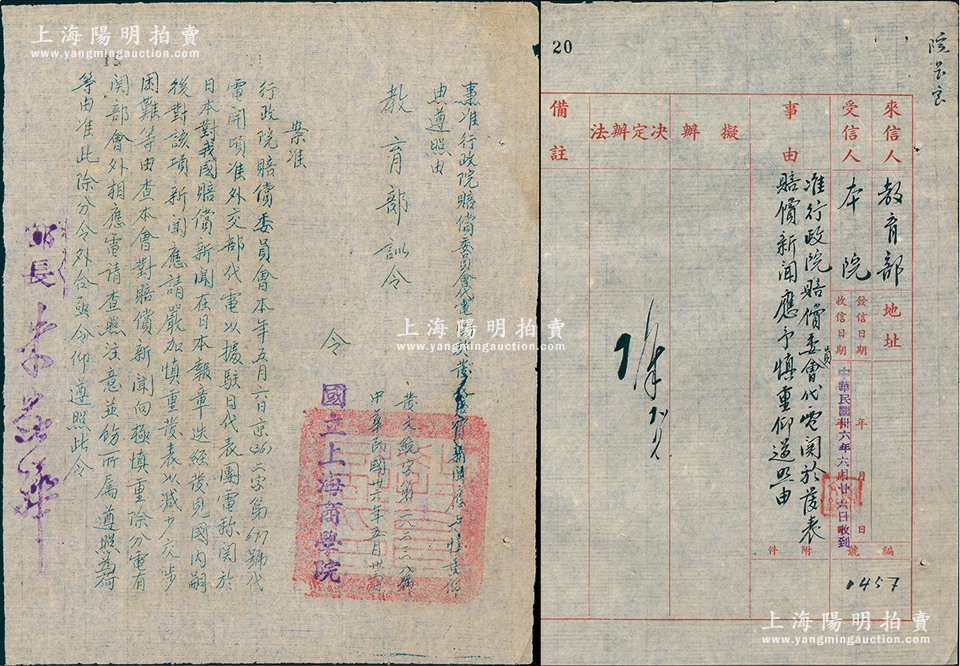 上海陽明拍賣
www.yangmingauction.com
案准行政院賠償委員會代電
應予慎重仰
遵照由
教育部訓令
發文統字第
號
中華民國卅六年五月卅日
令
國立上海商學院
案准
行政院賠償委員會本年五月六日京(36)六字第697號代
電開頃准外交部代電以據駐日代表團電稱関於
日本對我國賠償新聞在日本報章迭經發見國内嗣
後對該項新聞應請嚴加慎重發表以減少交涉
困難等由查本會對賠償新聞向極慎重除分電有
関部會外相應電請查照注意並飭所屬遵照為荷
等由准此除分令外合亟令仰遵照此令
部長朱家驊
20
來信人
教育部
地址
受信人
本院
發信日期
年
月
日
收信日期
中華民國卅六年六月廿六日收到
編號
1457
附件
事由
准行政院賠償委員會代電関於發表
賠償新聞應予慎重仰遵照由
擬辦
决定辦法
備註
上海陽明拍賣
www.yangmingauction.com
上海陽明拍賣
www.yangmingauction.com